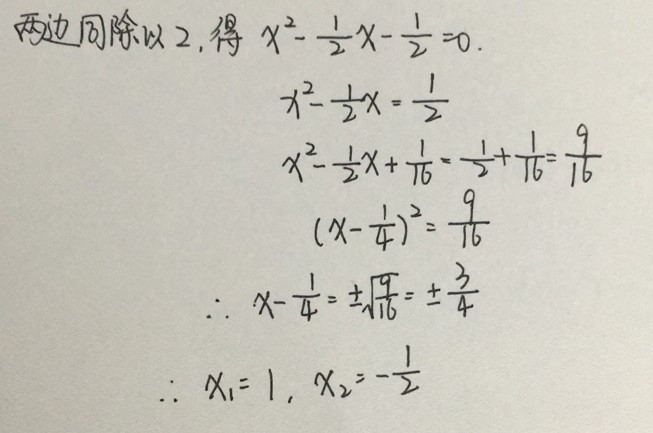 两边同除以2,得 x² - 1/2 x - 1/2 = 0.
x² - 1/2 x = 1/2
x² - 1/2 x + 1/16 = 1/2 + 1/16 = 9/16
(x - 1/4)² = 9/16
∴ x - 1/4 = ±√(9/16) = ± 3/4
∴ x₁ = 1, x₂ = - 1/2